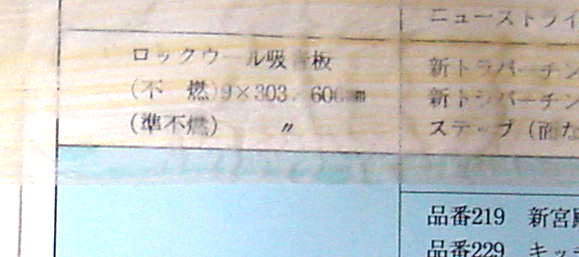 ニューストライ
ロックウール吸音板
新トラバーチン
(不 燃)9×303 606㎜
新トラバーチン
(準不燃) 〃
ステップ(面な
品番219 新宮殿
品番229 キッチ